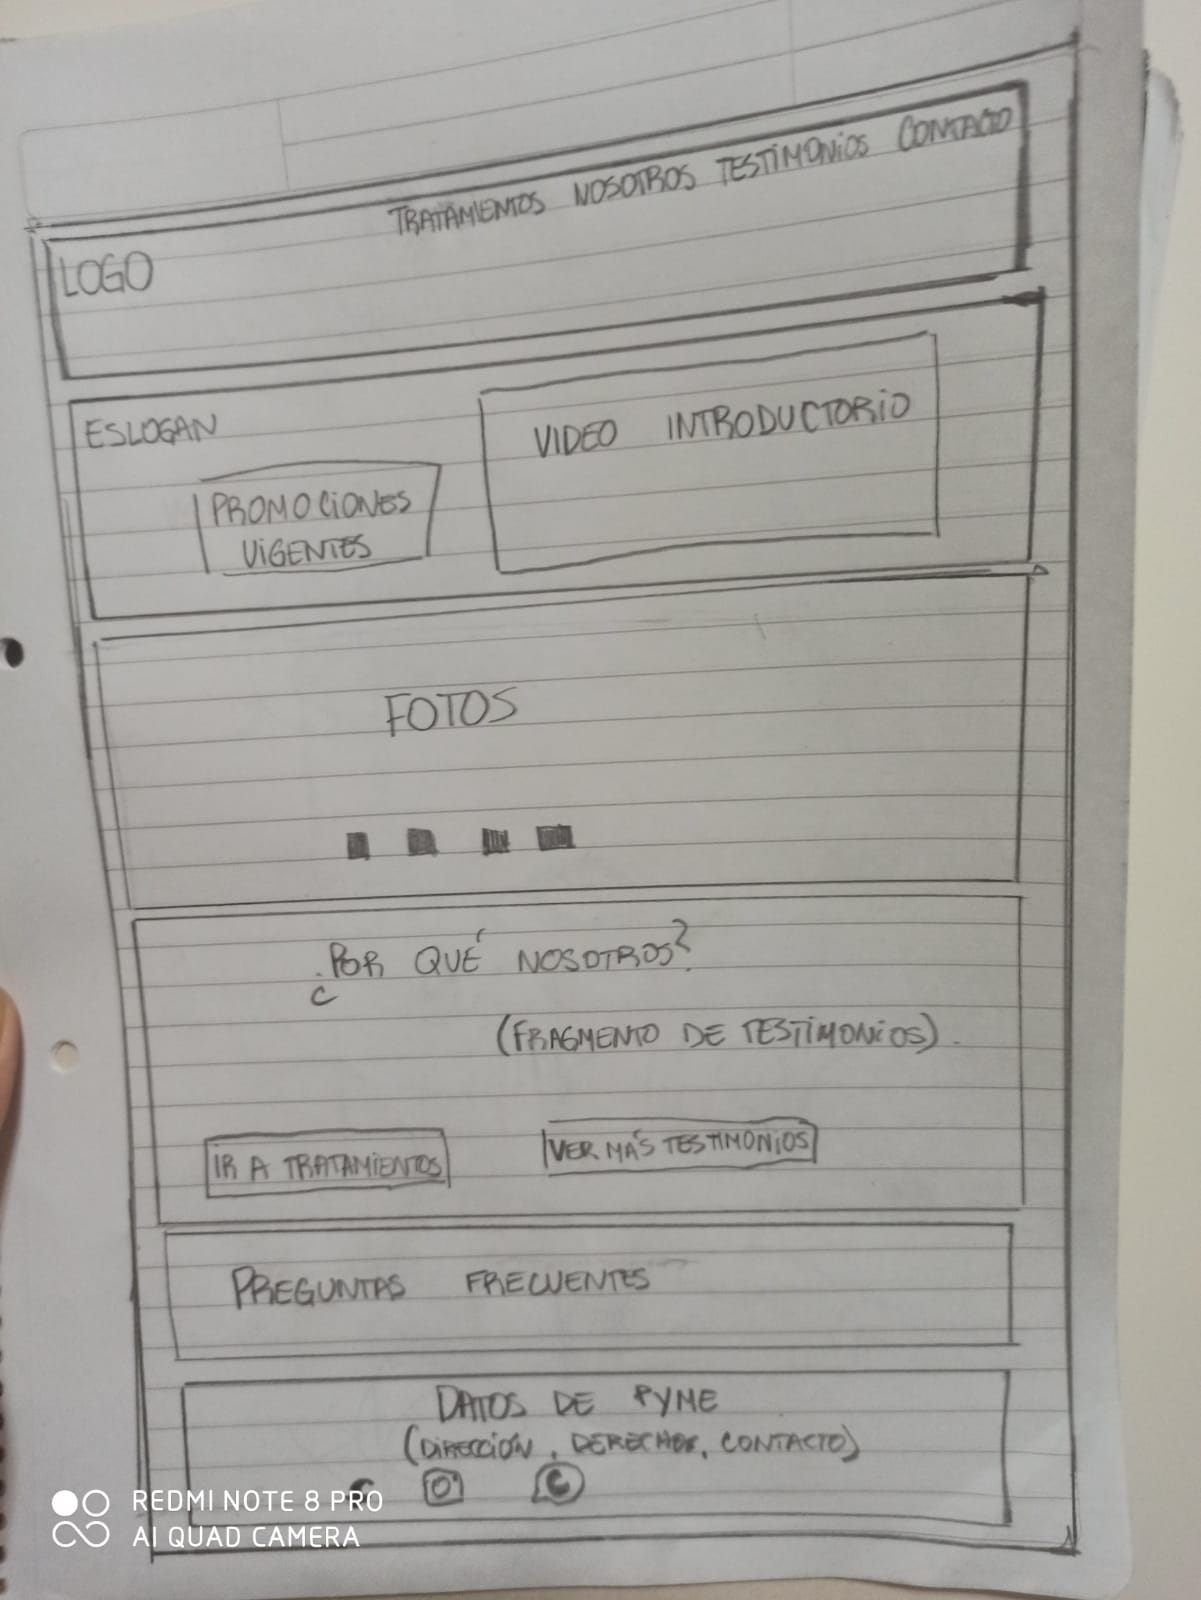 TRATAMIENTOS NOSOTROS TESTIMONIOS CONTACTO
LOGO
ESLOGAN
VIDEO INTRODUCTORIO
PROMOCIONES
VIGENTES
FOTOS
¿POR QUÉ NOSOTROS?
(FRAGMENTO DE TESTIMONIOS).
IR A TRATAMIENTOS
VER MÁS TESTIMONIOS
PREGUNTAS FRECUENTES
DATOS DE PYME
(DIRECCIÓN, DERECHOS, CONTACTO)
REDMI NOTE 8 PRO
AI QUAD CAMERA